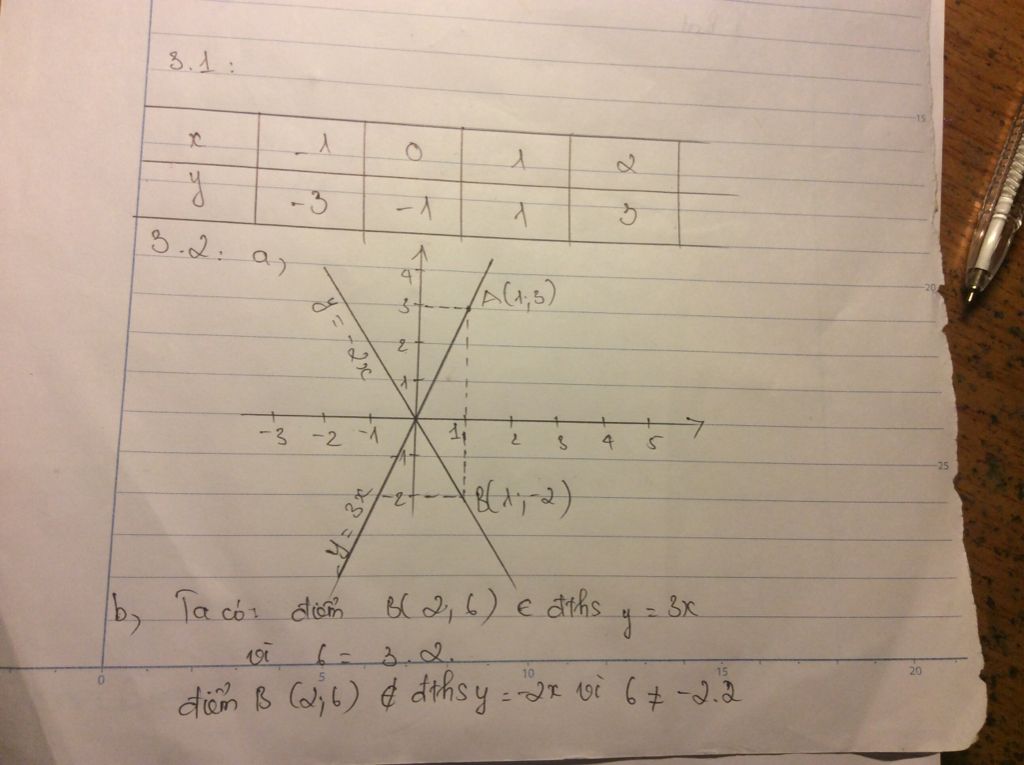 3.1:
x -1 0 1 2
y -3 -1 1 3
3.2: a,
4
3 A(1;3)
2
1
-3 -2 -1 1 2 3 4 5
-1
-2 B(1;-2)
y = -2x
y = 3x
b, Ta có: điểm B(2,6) ∈ đths y = 3x
vì 6 = 3.2.
điểm B (2,6) ∉ đths y = -2x vì 6 ≠ -2.2
15
20
25
0 5 10 15 20